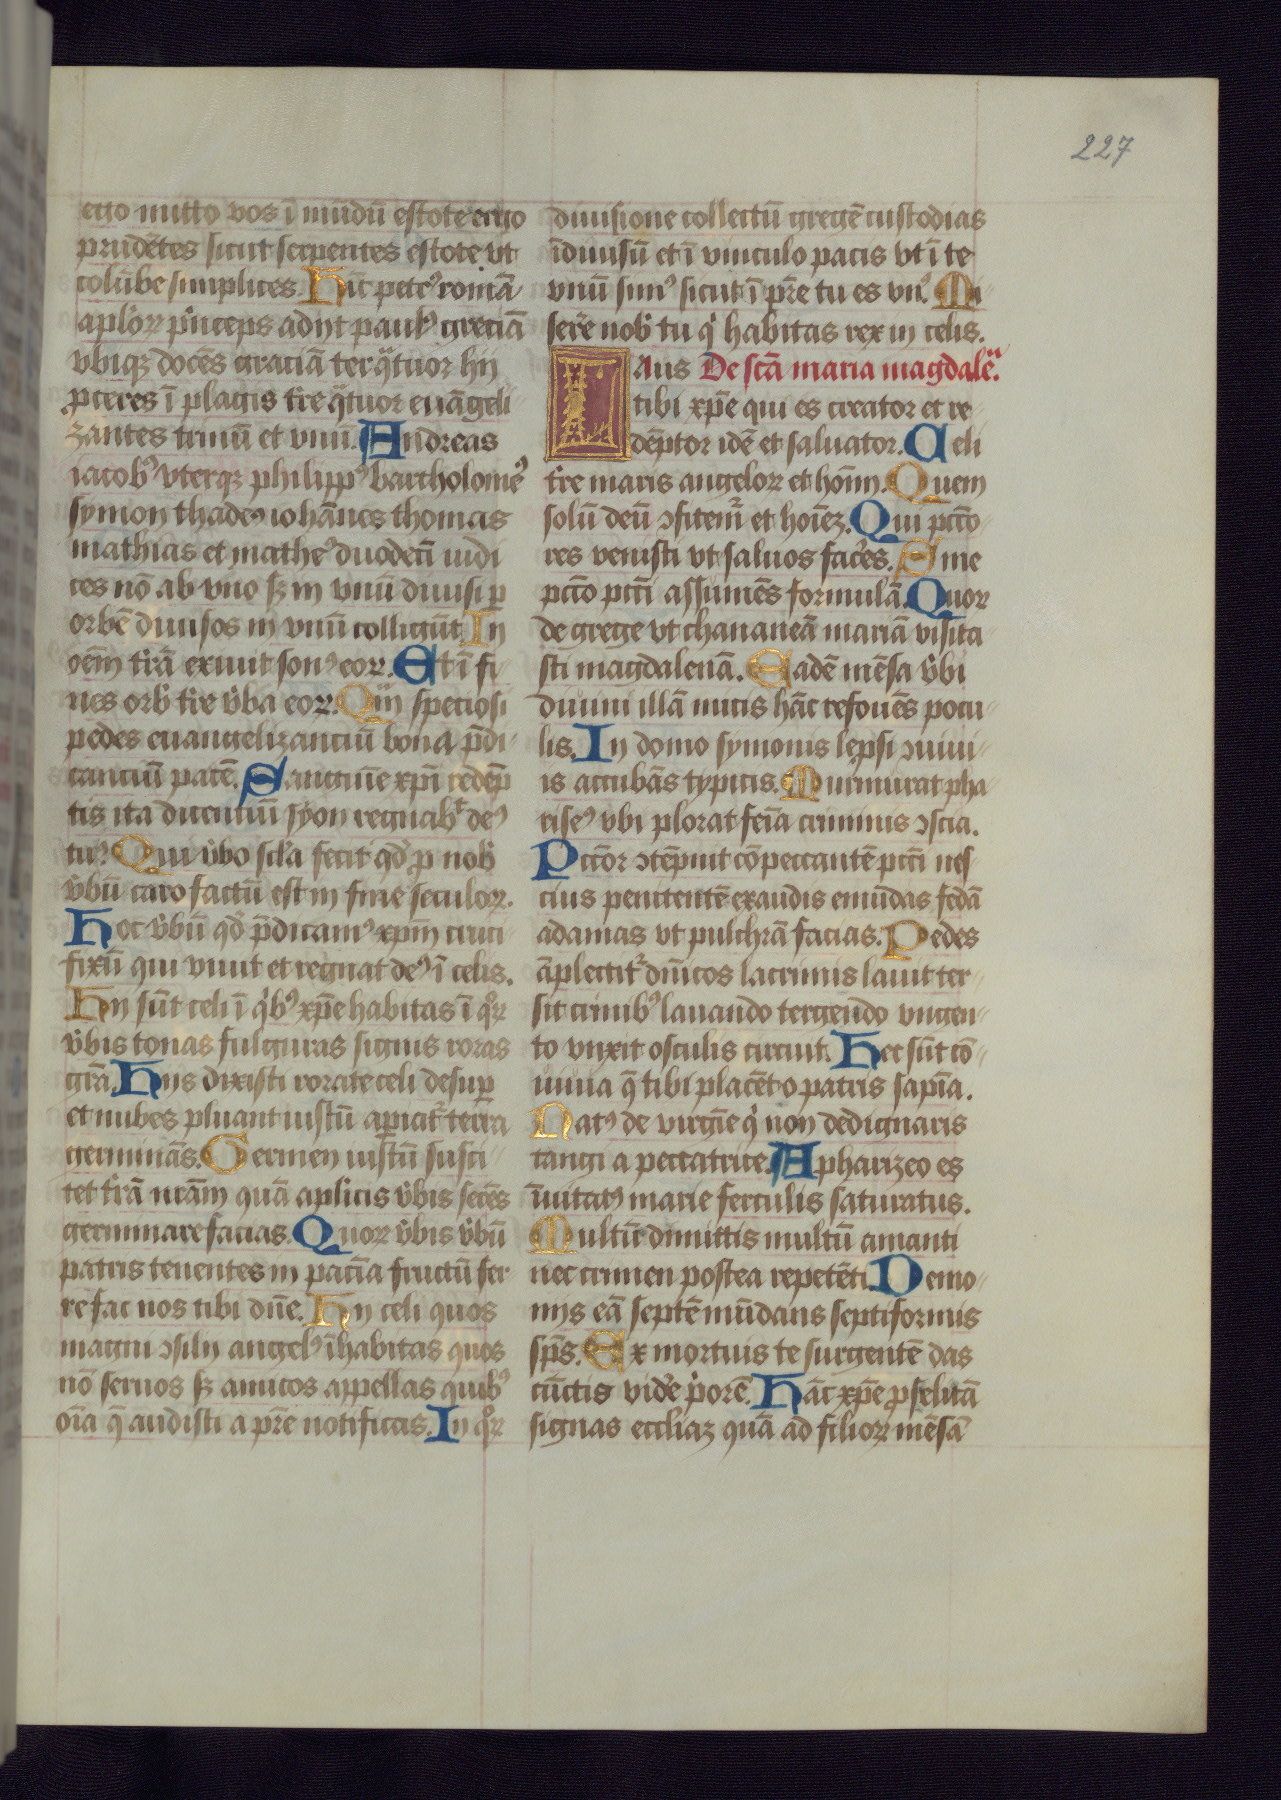 227
ergo mitto vos ī mūdū estote ergo
prudētes sicut serpentes estote vt
colūbe simplices. Hīc petrꝰ romā
aplōꝝ prīceps adijt paulꝰ greciā
vbiqꝫ docēs graciā ter qͣtuor hij
ꝓceres ī plagis tr̄e qͣtuor euāgeli
zantes trinū et vnū. Andreas
iacobꝰ vterqꝫ philippꝰ bartholomeꝰ
symon thadeꝰ iohānes thomas
mathias et matheꝰ duodecī iudi
ces nō ab vno sꝫ in vnū diuisi ꝑ
orbē diuisos in vnū colligūt. In
oēm tr̄ā exiuit sonꝰ eoꝝ. Et ī fi
nes orbꝭ tr̄e v̄ba eoꝝ. Qm̄ speciosi
pedes euangelizanciū bona p̄di
canciū pacē. Sanguīe xp̄i redēp
tis ita dicenciū syon regnabit deꝰ
tuꝰ. Qui v̄bo sc̄la fecit qd̄ ꝓ nobꝭ
v̄bū caro factū est in fine seculoꝝ.
Hoc v̄bū qd̄ p̄dicamꝰ xp̄m cruci
fixū qui viuit et regnat deꝰ ī celis.
Hij sūt celi ī qͥbꝰ xp̄e habitas ī qͦꝝ
v̄bis tonas fulguras signis roras
grā. Hijs dixisti rorate celi desuꝑ
et nubes pluant iustū aꝑiatꝛ terra
germinās. Germen iustū susci
tet tr̄ā nr̄am quā aplicis v̄bis serēs
germinare facias. Quoꝝ v̄bis v̄bū
patris tenentes in paciā fructū fer
re fac nos tibi dn̄e. Hij celi quos
magni ɔsilij angelꝰ īhabitas quos
nō seruos sꝫ amicos appellas quibꝰ
oīa q̄ audisti a pr̄e notificas. In qͦꝝ
diuisione collectū gregē custodias
īdiuisū et ī vinculo pacis vt ī te
vnū simꝰ sicut ī pr̄e tu es vnꝰ. Mi
serere nobꝭ tu qͥ habitas rex in celis.
Laus De scā maria magdaleͣ.
tibi xp̄e qui es creator et re
dēptor idē et saluator. Celi
tr̄e maris angeloꝝ et hoīm. Quem
solū deū ɔfitemꝛ et hoīeꝫ. Qui pcc̄o
res venisti vt saluos faceres. Sine
pcc̄o pcc̄i assumēs formulā. Quoꝝ
de grege vt chananeā mariā visita
sti magdalenā. Eadē mēsa v̄bi
diuini illā micis hāc refouēs pocu
lis. In domo symonis lepsi ɔuiui
is accubās typicis. Murmurat pha
riseꝰ vbi plorat feīa criminis ɔscia.
Pcc̄or ɔtēpnit cōpeccantē pcc̄i nes
cius penitentē exaudis emūdas fedā
adamas vt pulchrā facias. Pedes
āplectitꝛ dn̄icos lacrimis lauit ter
sit crinibꝰ lauando tergendo vngen
to vnxit osculis circuit. Hec sūt cō
uiuia q̄ tibi placēt o patris sapīa.
Natꝰ de virgīe qͥ non dedignaris
tangi a peccatrice. A pharizeo es
īuitatꝰ marie ferculis saturatus.
Multū dimittis multū amanti
nec crimen postea repetēti. Demo
nijs eā septē mūdans septiformis
sp̄s. Ex mortuis te surgentē das
cūctis videre pͥorē. Hāc xp̄e ꝓselitā
signas eccl̄iaꝫ quā ad filioꝝ mēsā